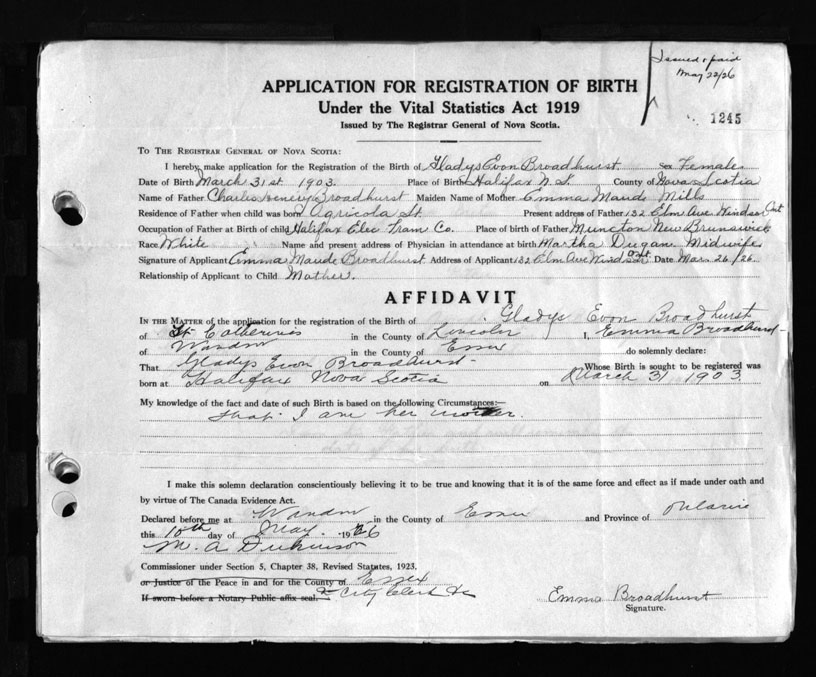 Issued & paid
May 22/26
1245
APPLICATION FOR REGISTRATION OF BIRTH
Under the Vital Statistics Act 1919
Issued by The Registrar General of Nova Scotia.
To The Registrar General of Nova Scotia:
I hereby make application for the Registration of the Birth of Gladys Evon Broadhurst. Sex Female
Date of Birth March 31st 1903. Place of Birth Halifax N.S. County of Nova Scotia
Name of Father Charles Henery Broadhurst Maiden Name of Mother Emma Maude Mills
Residence of Father when child was born Agricola St. Present address of Father 132 Elm Ave Windsor Ont
Occupation of Father at Birth of child Halifax Elec Tram Co. Place of birth of Father Muncton New Brunswick
Race White Name and present address of Physician in attendance at birth Martha Dugan Midwife
Signature of Applicant Emma Maude Broadhurst Address of Applicant 132 Elm Ave Windsor Ont Date Mar. 26/26.
Relationship of Applicant to Child Mother.
AFFIDAVIT
In the Matter of the application for the registration of the Birth of Gladys Evon Broadhurst
of St Catherines in the County of Lincoln I, Emma Broadhurst
of Windsor in the County of Essex do solemnly declare:
That Gladys Evon Broadhurst Whose Birth is sought to be registered was
born at Halifax Nova Scotia on March 31 1903
My knowledge of the fact and date of such Birth is based on the following Circumstances:
that I am her mother.
I make this solemn declaration conscientiously believing it to be true and knowing that it is of the same force and effect as if made under oath and
by virtue of The Canada Evidence Act.
Declared before me at Windsor in the County of Essex and Province of Ontario
this 10th day of May 1926
M. A. Dickinson
Commissioner under Section 5, Chapter 38, Revised Statutes, 1923.
or Justice of the Peace in and for the County of Essex
If sworn before a Notary Public affix seal. City Clerk &c
Emma Broadhurst
Signature.